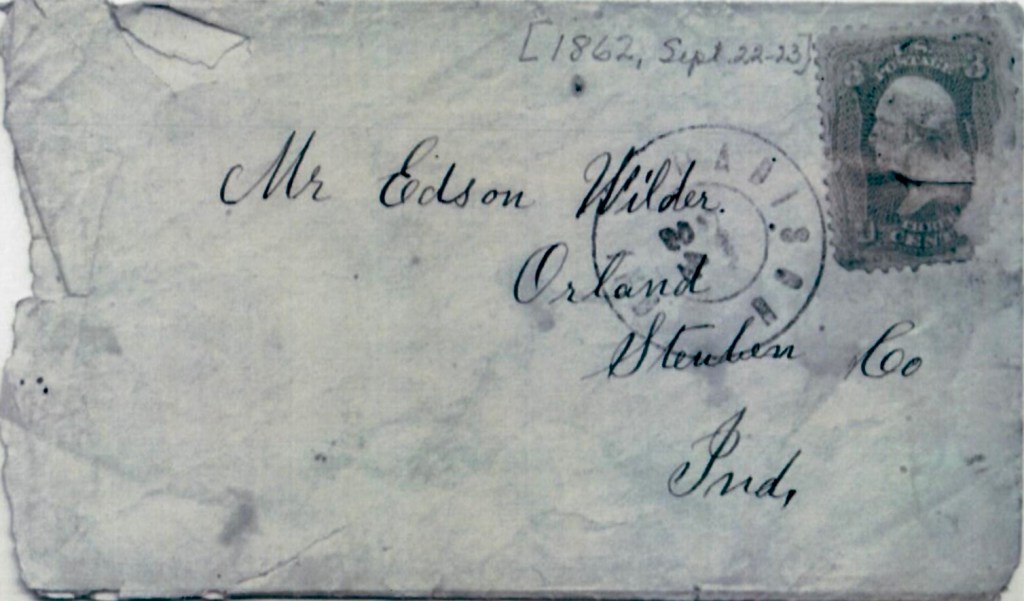 [1862, Sept. 22-23]
3 POSTAGE 3
Mr Edson Wilder.
Orland
Steuben Co
Ind,